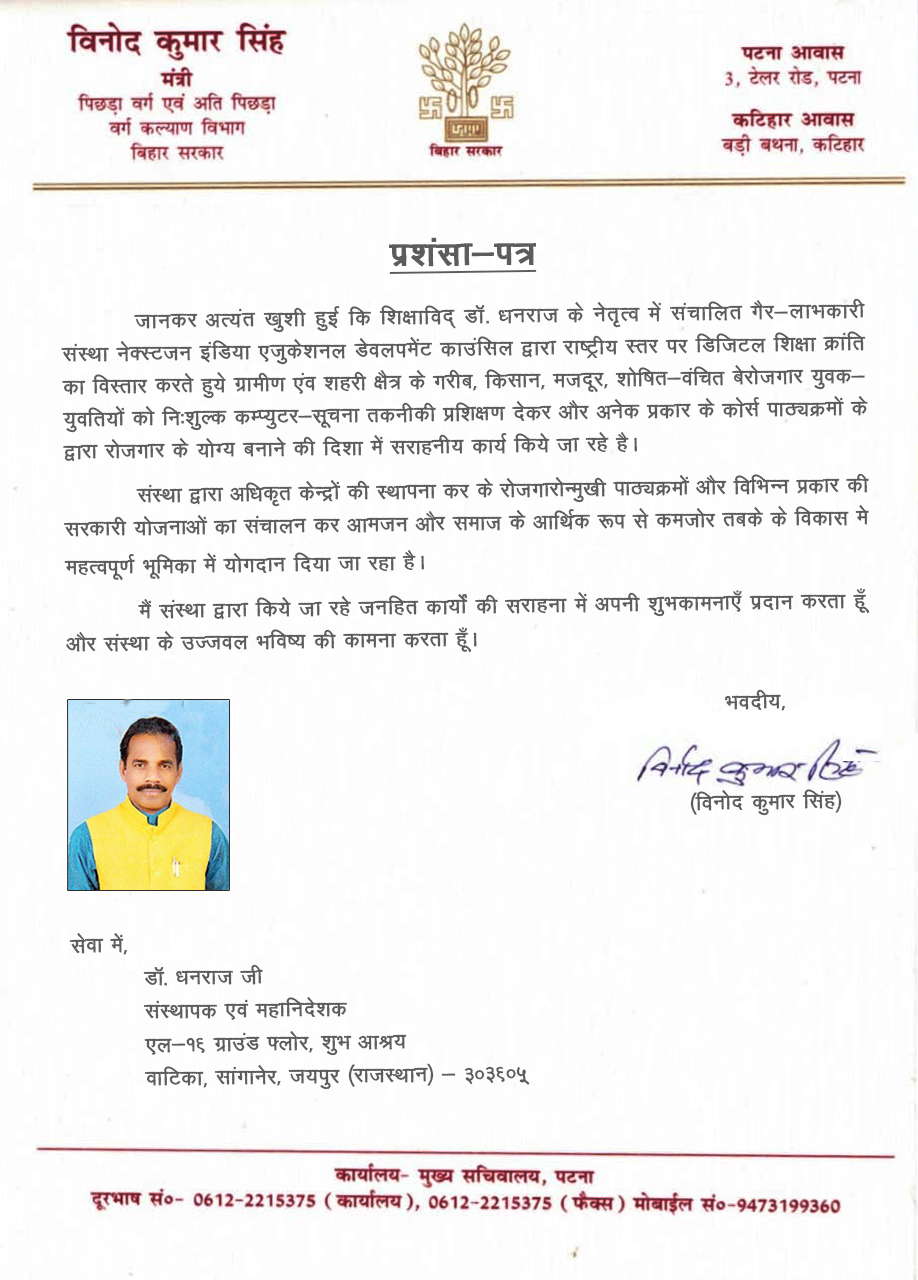 विनोद कुमार सिंह
मंत्री
पिछड़ा वर्ग एवं अति पिछड़ा
वर्ग कल्याण विभाग
बिहार सरकार
बिहार सरकार
पटना आवास
3, टेलर रोड, पटना
कटिहार आवास
बड़ी बथना, कटिहार
प्रशंसा–पत्र
जानकर अत्यंत खुशी हुई कि शिक्षाविद् डॉ. धनराज के नेतृत्व में संचालित गैर–लाभकारी
संस्था नेक्स्टजन इंडिया एजुकेशनल डेवलपमेंट काउंसिल द्वारा राष्ट्रीय स्तर पर डिजिटल शिक्षा क्रांति
का विस्तार करते हुये ग्रामीण एंव शहरी क्षैत्र के गरीब, किसान, मजदूर, शोषित–वंचित बेरोजगार युवक–
युवतियों को निःशुल्क कम्प्युटर–सूचना तकनीकी प्रशिक्षण देकर और अनेक प्रकार के कोर्स पाठ्यक्रमों के
द्वारा रोजगार के योग्य बनाने की दिशा में सराहनीय कार्य किये जा रहे है।
संस्था द्वारा अधिकृत केन्द्रों की स्थापना कर के रोजगारोन्मुखी पाठ्यक्रमों और विभिन्न प्रकार की
सरकारी योजनाओं का संचालन कर आमजन और समाज के आर्थिक रूप से कमजोर तबके के विकास मे
महत्वपूर्ण भूमिका में योगदान दिया जा रहा है।
मैं संस्था द्वारा किये जा रहे जनहित कार्यों की सराहना में अपनी शुभकामनाएँ प्रदान करता हूँ
और संस्था के उज्जवल भविष्य की कामना करता हूँ।
भवदीय,
विनोद कुमार सिंह
(विनोद कुमार सिंह)
सेवा में,
डॉ. धनराज जी
संस्थापक एवं महानिदेशक
एल–१६ ग्राउंड फ्लोर, शुभ आश्रय
वाटिका, सांगानेर, जयपुर (राजस्थान) – ३०३६०५
कार्यालय- मुख्य सचिवालय, पटना
दूरभाष सं०- 0612-2215375 ( कार्यालय ), 0612-2215375 ( फैक्स ) मोबाईल सं०-9473199360